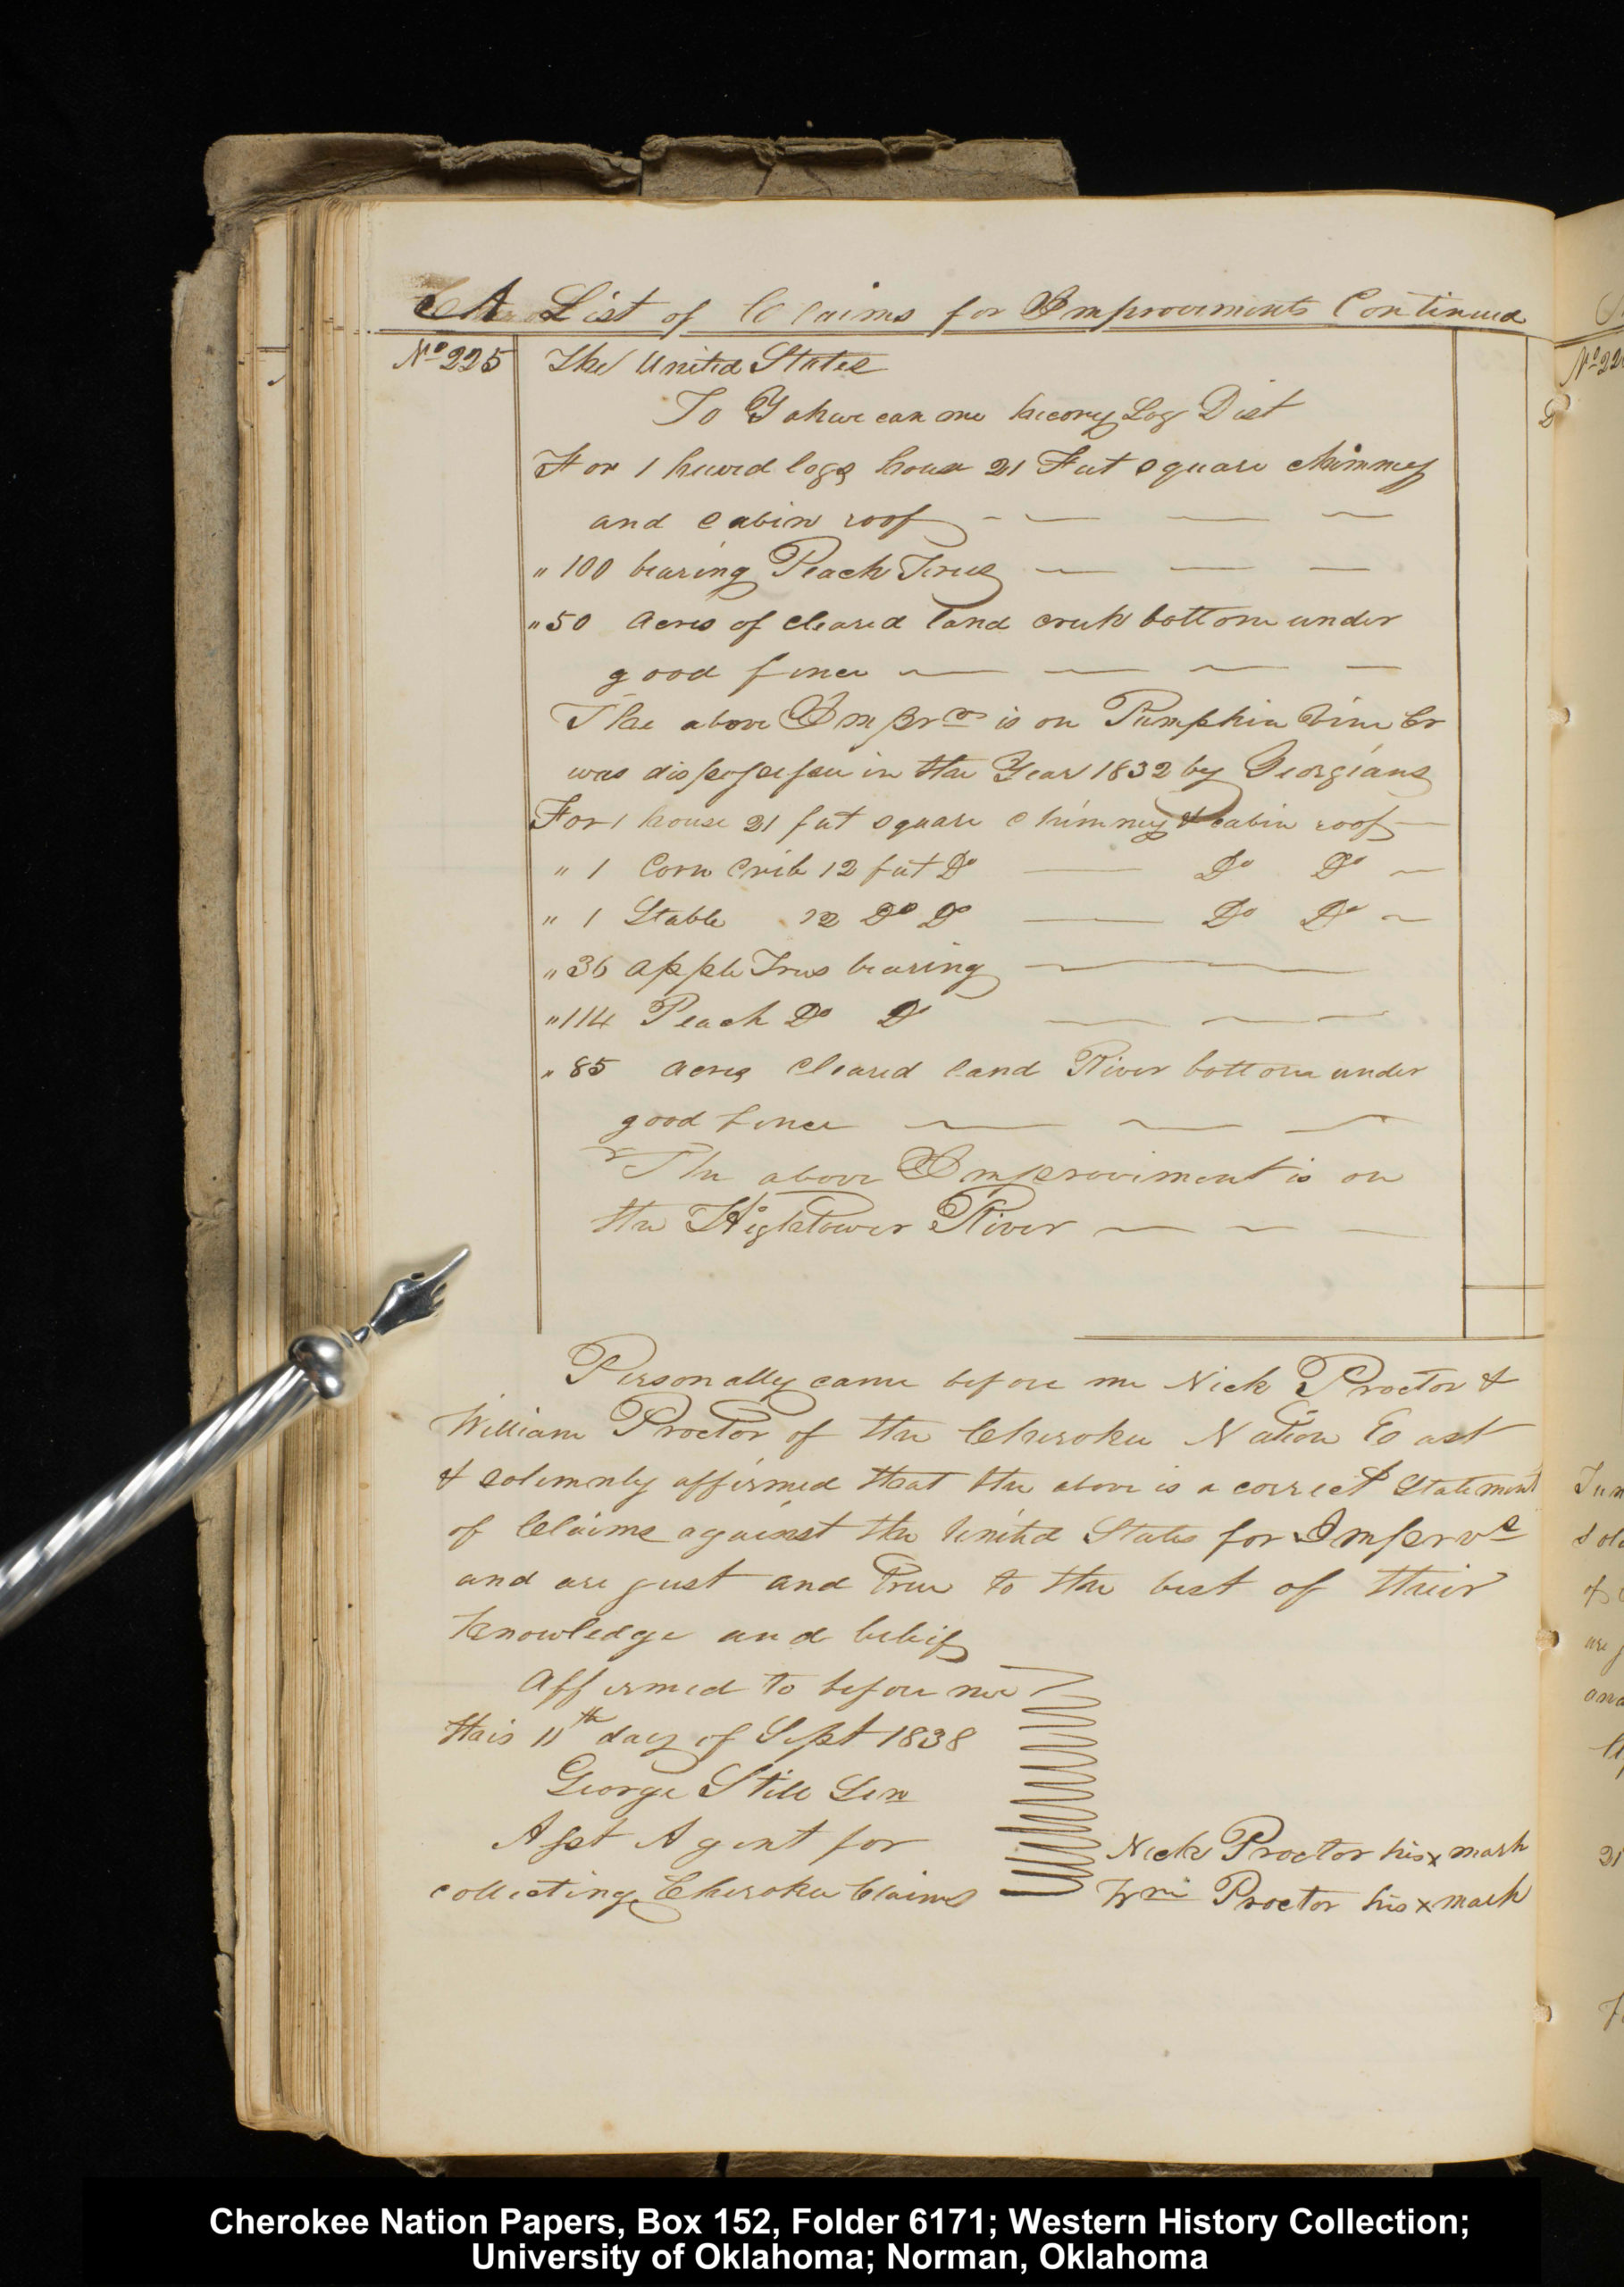 A List of Claims for Improvements Continued
No 225 The United States
To Yohweeanme hicory Log Dist
For 1 hewed logs house 21 Feet square chimney
and cabin roof
" 100 bearing Peach Trees
" 50 acres of cleared land creek bottom under
good fence
The above Imprvs is on Pumpkin Vine Cr
was dispossessed in the Year 1832 by Georgians
For 1 house 21 feet square chimney & cabin roof
" 1 Corn Crib 12 feet Do Do Do
" 1 Stable 12 Do Do Do Do
" 36 apple Trees bearing
" 114 Peach Do Do
" 85 acres Cleared land River bottom under
good fence
The above Improvement is on
the Hightower River
Personally came before me Nick Proctor &
William Proctor of the Cherokee Nation East
& solemnly affirmed that the above is a correct Statement
of Claims against the United States for Imprvs
and are just and True to the best of their
knowledge and beleif
Affirmed to before me
this 11th day of Sept 1838
George Still Sen
Asst Agent for
collecting Cherokee Claims
Nick Proctor his x mark
Wm Proctor his x mark
No 22
Cherokee Nation Papers, Box 152, Folder 6171; Western History Collection;
University of Oklahoma; Norman, Oklahoma